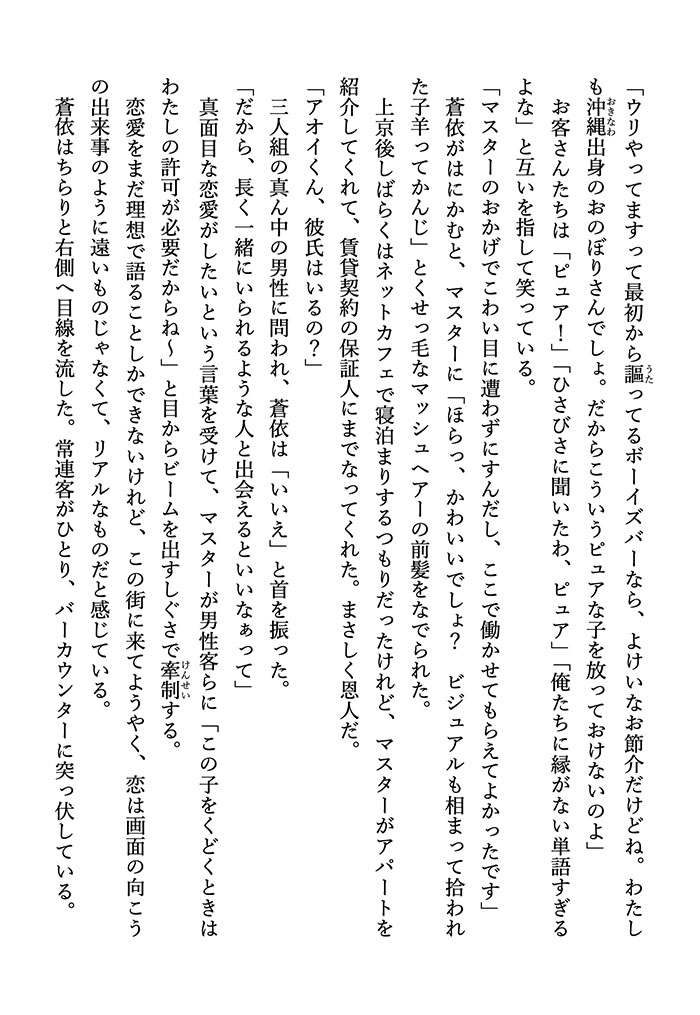 「ウリやってますって最初から謳ってるボーイズバーなら、よけいなお節介だけどね。わたし
も沖縄出身のおのぼりさんでしょ。だからこういうピュアな子を放っておけないのよ」
　お客さんたちは「ピュア！」「ひさびさに聞いたわ、ピュア」「俺たちに縁がない単語すぎる
よな」と互いを指して笑っている。
「マスターのおかげでこわい目に遭わずにすんだし、ここで働かせてもらえてよかったです」
　蒼依がはにかむと、マスターに「ほらっ、かわいいでしょ？　ビジュアルも相まって拾われ
た子羊ってかんじ」とくせっ毛なマッシュヘアーの前髪をなでられた。
　上京後しばらくはネットカフェで寝泊まりするつもりだったけれど、マスターがアパートを
紹介してくれて、賃貸契約の保証人にまでなってくれた。まさしく恩人だ。
「アオイくん、彼氏はいるの？」
　三人組の真ん中の男性に問われ、蒼依は「いいえ」と首を振った。
「だから、長く一緒にいられるような人と出会えるといいなぁって」
　真面目な恋愛がしたいという言葉を受けて、マスターが男性客らに「この子をくどくときは
わたしの許可が必要だからね～」と目からビームを出すしぐさで牽制する。
　恋愛をまだ理想で語ることしかできないけれど、この街に来てようやく、恋は画面の向こう
の出来事のように遠いものじゃなくて、リアルなものだと感じている。
　蒼依はちらりと右側へ目線を流した。常連客がひとり、バーカウンターに突っ伏している。